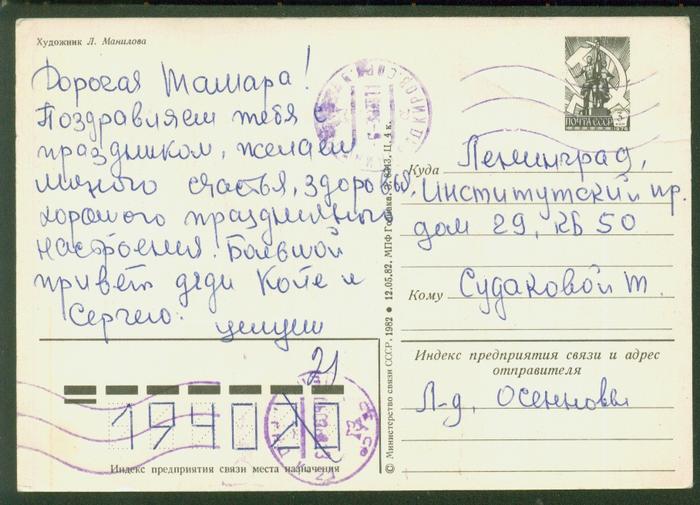 Художник Л. Манилова
Дорогая Тамара!
Поздравляем тебя с
праздником, желаем
много счастья, здоровья,
хорошего праздничного
настроения. Большой
привет дяди Коле и
Сергею. целуем
21
194020
Индекс предприятия связи места назначения
© Министерство связи СССР, 1982 ● 12.05.82, МПФ Гознака,
ПОЧТА СССР
3
Куда Ленинград,
Институтский пр.
дом 29, КВ 50
Кому Судаковой Т.
Индекс предприятия связи и адрес
отправителя
Л-д, Осенновы